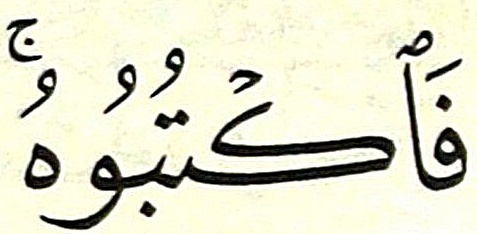 فَٱكْتُبُوُهُ ۚ